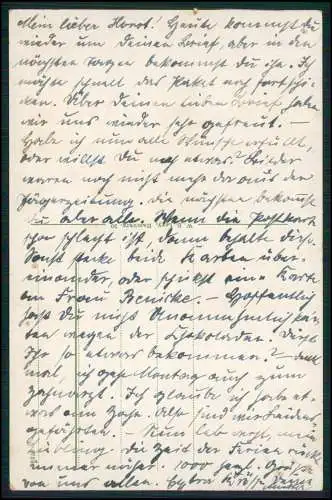 Mein lieber Horst! Heute kommst du
wieder um deinen Brief, aber in den
nächsten Tagen bekommst du ihn. Ich
möchte schnell das Paket noch fortschi-
cken. Über deinen lieben Brief haben
wir uns wieder sehr gefreut. –
Habe ich nun alle Wünsche erfüllt,
oder willst du noch etwas? Bilder
waren noch nicht mehr da aus der
Jägerzeitung. die nächsten bekommst
du aber alle. Wenn die Postkarte
schon schlecht ist, dann behalte dich.
Sonst stecke beide Karten über-
einander, oder schickst eine Karte
an Frau – Hoffentlich
hast du nicht Unannehmlichkei-
ten wegen der Schokolade. Dürft
Ihr so etwas bekommen? – denk
mal, ich gehe Montag auch zum
Zahnarzt. Ich glaube ich habe et-
was am Zahn. Also sind wir Leidens-
gefährten. – Nun leb wohl, mein
Liebling. die Zeit der Ferien rückt
immer näher. 1000 herzl. Grüße
von uns allen.